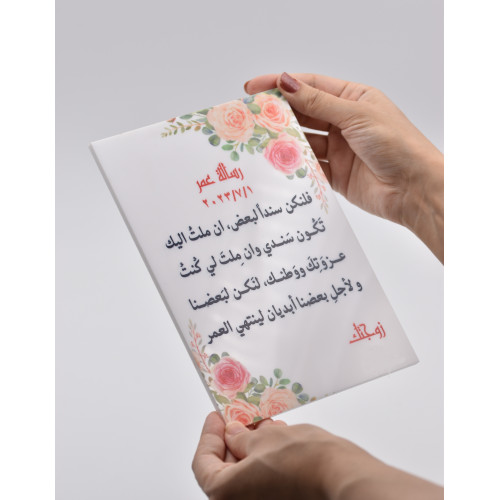 رسالة عمر
٢٠٢٣/٧/١
فلنكن سنداً لبعض، ان ملتُ اليك
تَكُون سَندي وان مِلتَ لي كُنتُ
عـزوَتِك ووَطنـك، لنَكـن لبَعضـنا
و لأجلِ بعضنا أبديان لينتهي العمر
زوجتك